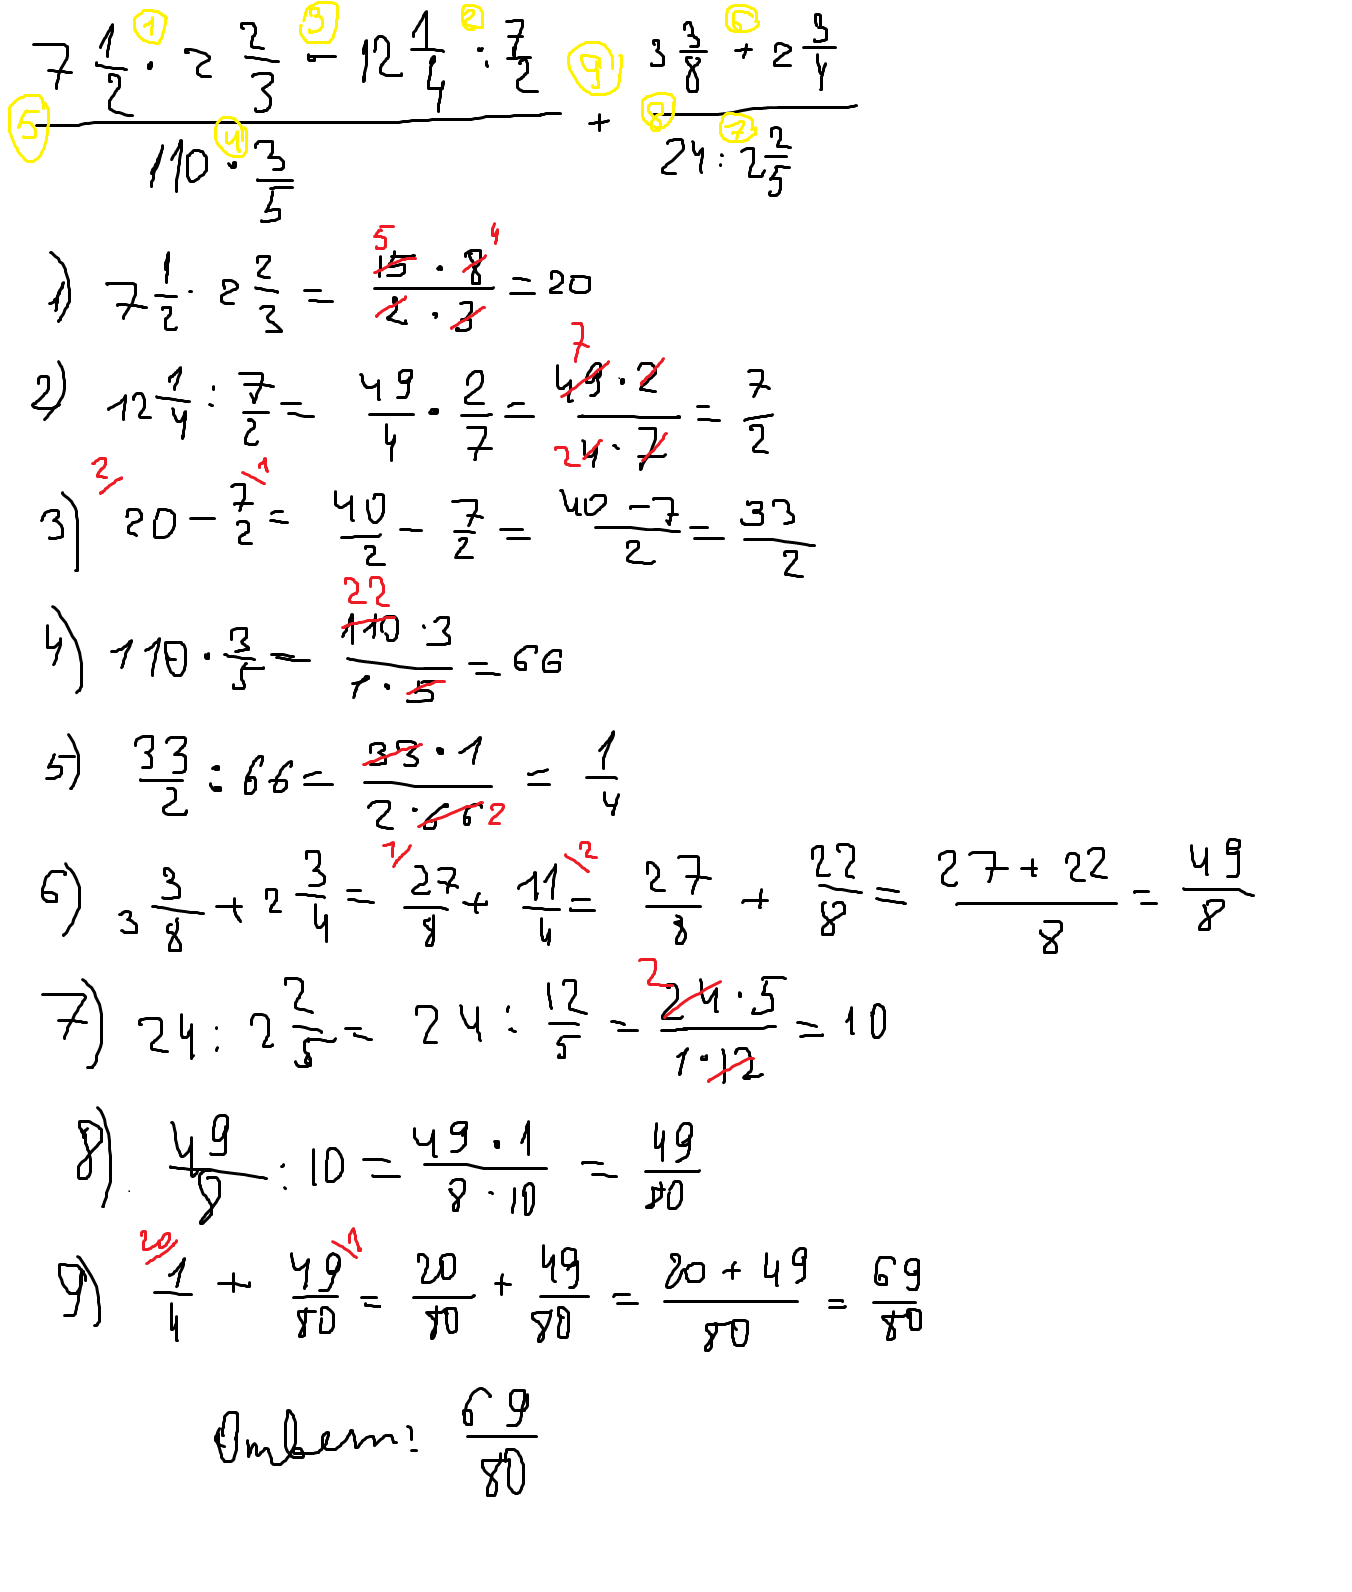 7 1/2 · 2 2/3 - 12 1/4 : 7/2 + 3 3/8 + 2 3/4
① ③ ② ⑨ ⑥
⑤ ④ ⑧ ⑦
110 · 3/5 24 : 2 2/5
1) 7 1/2 · 2 2/3 = 15 · 8 / 2 · 3 = 20
5 4
2) 12 1/4 : 7/2 = 49/4 · 2/7 = 49 · 2 / 4 · 7 = 7/2
7 2
3) 20 - 7/2 = 40/2 - 7/2 = 40 - 7 / 2 = 33/2
2/ \1
4) 110 · 3/5 = 110 · 3 / 1 · 5 = 66
22
5) 33/2 : 66 = 33 · 1 / 2 · 66 = 1/4
2
6) 3 3/8 + 2 3/4 = 27/8 + 11/4 = 27/8 + 22/8 = 27 + 22 / 8 = 49/8
1/ \2
7) 24 : 2 2/5 = 24 : 12/5 = 24 · 5 / 1 · 12 = 10
2
8) 49/8 : 10 = 49 · 1 / 8 · 10 = 49/80
9) 1/4 + 49/80 = 20/80 + 49/80 = 20 + 49 / 80 = 69/80
20/ \1
Ответ: 69/80